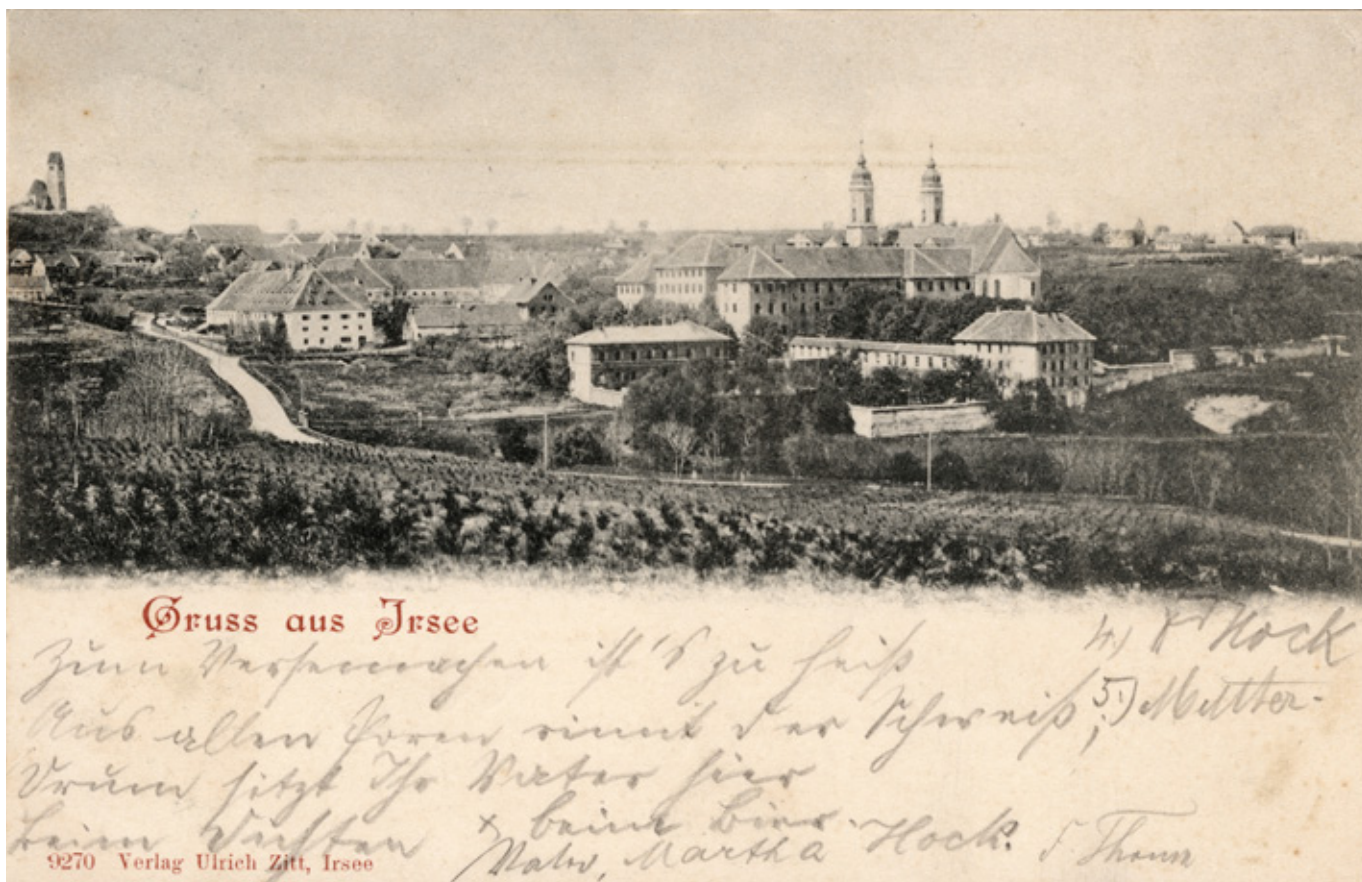 Gruss aus Irsee
Zum Versemachen ist's zu heiß
Aus allen Poren rinnt der Schweiß;
Drum sitzt Ihr Vater hier
beim Dichten x beim Bier.
Martha Hock.
4.) Hock
5.) Mutter-
Thoma
9270 Verlag Ulrich Zitt, Irsee